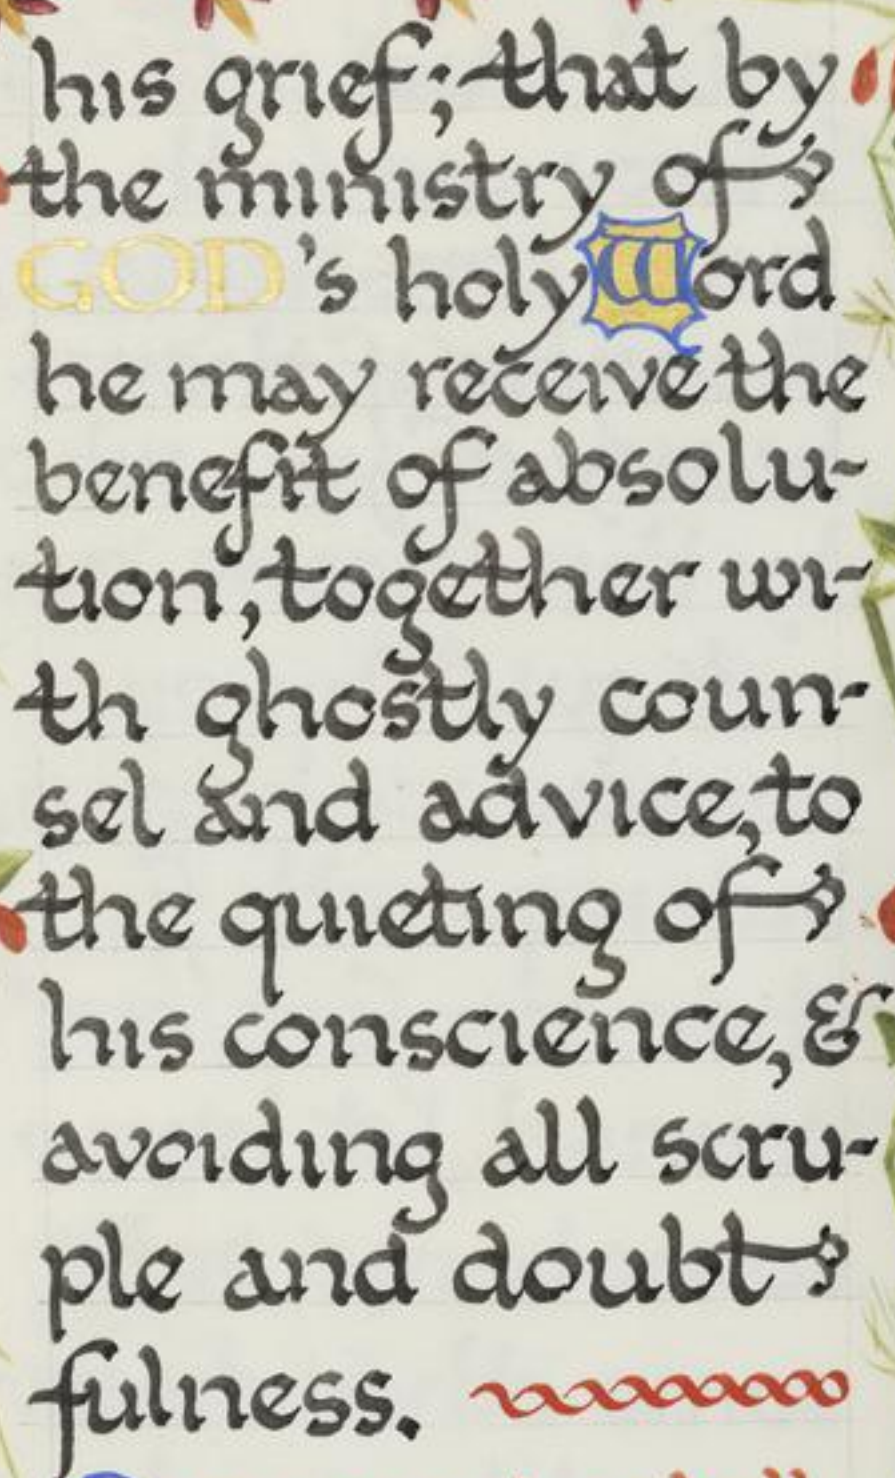 his grief; that by
the ministry of
GOD's holy Word
he may receive the
benefit of absolu-
tion, together wi-
th ghostly coun-
sel and advice, to
the quieting of
his conscience, &
avoiding all scru-
ple and doubt
fulness.